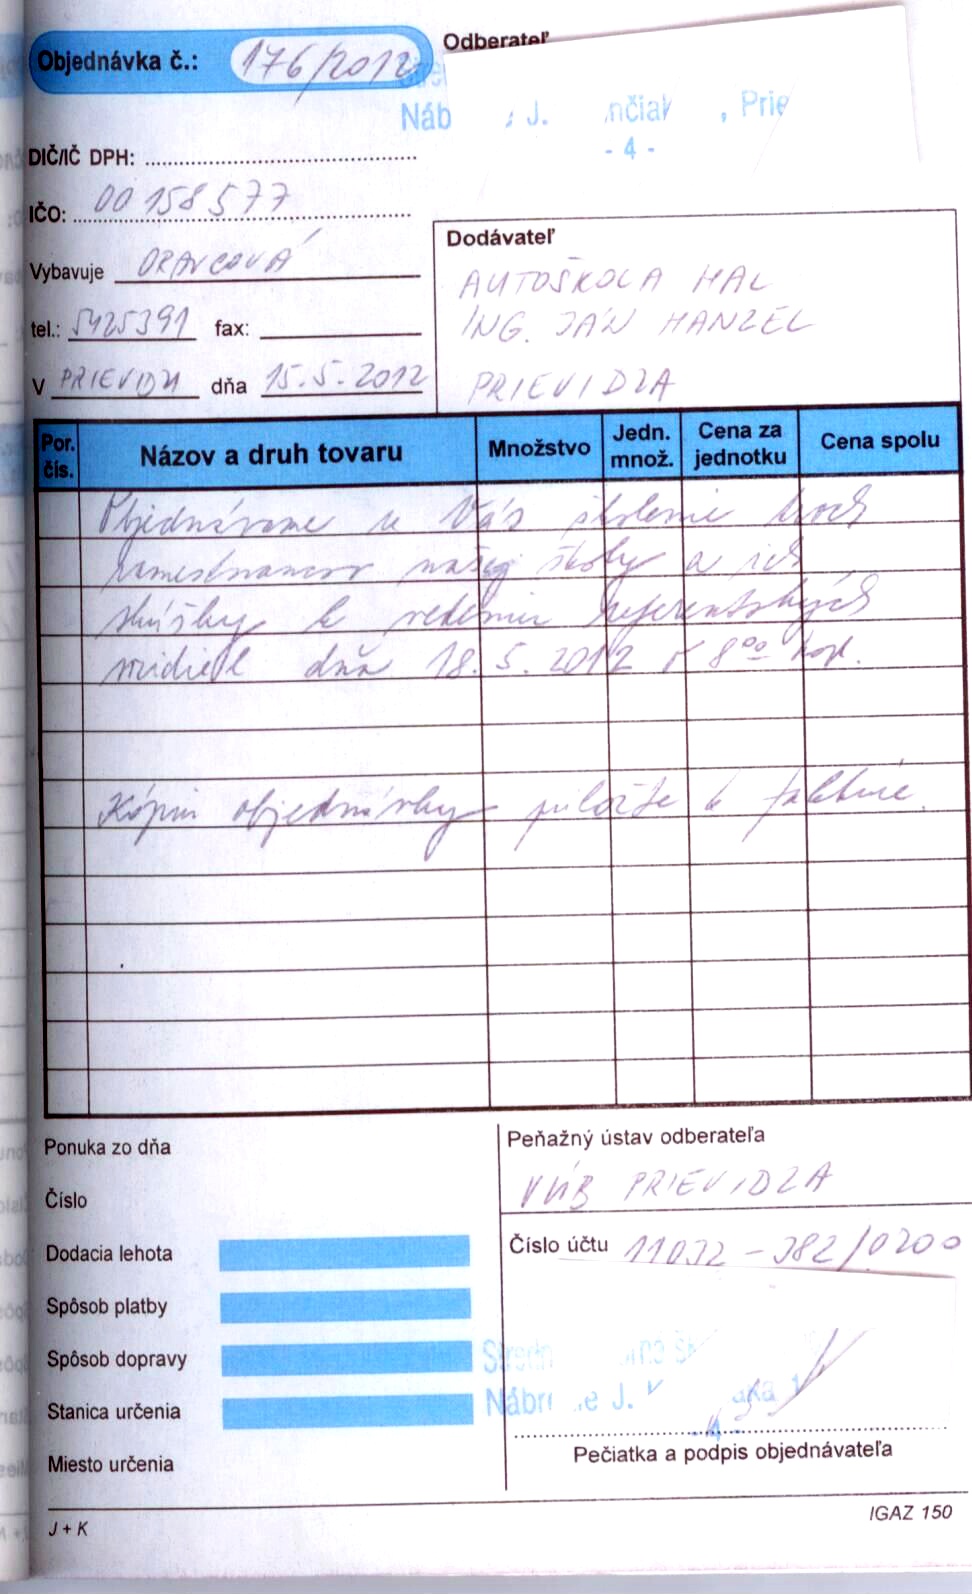 Objednávka č.: 176/2012
Odberateľ
Náb J. nčiak , Prie
- 4 -
DIČ/IČ DPH:
IČO: 00158577
Vybavuje ORAVCOVÁ
tel.: 5425391 fax:
V PRIEVIDZI dňa 15.5.2012
Dodávateľ
AUTOŠKOLA HAL
ING. JÁN HANZEL
PRIEVIDZA
Por. čís. Názov a druh tovaru Množstvo Jedn. množ. Cena za jednotku Cena spolu
Objednávame u Vás školenie dvoch
zamestnancov našej školy a ich
skúšky k vedeniu referentských
vozidiel dňa 18.5.2012 o 8⁰⁰ hod.
Kópiu objednávky priložte k faktúre.
Ponuka zo dňa
Číslo
Dodacia lehota
Spôsob platby
Spôsob dopravy
Stanica určenia
Miesto určenia
Peňažný ústav odberateľa
VÚB PRIEVIDZA
Číslo účtu 11032-382/0200
Stredn
Nábr e J.
- 4 -
Pečiatka a podpis objednávateľa
J + K
IGAZ 150